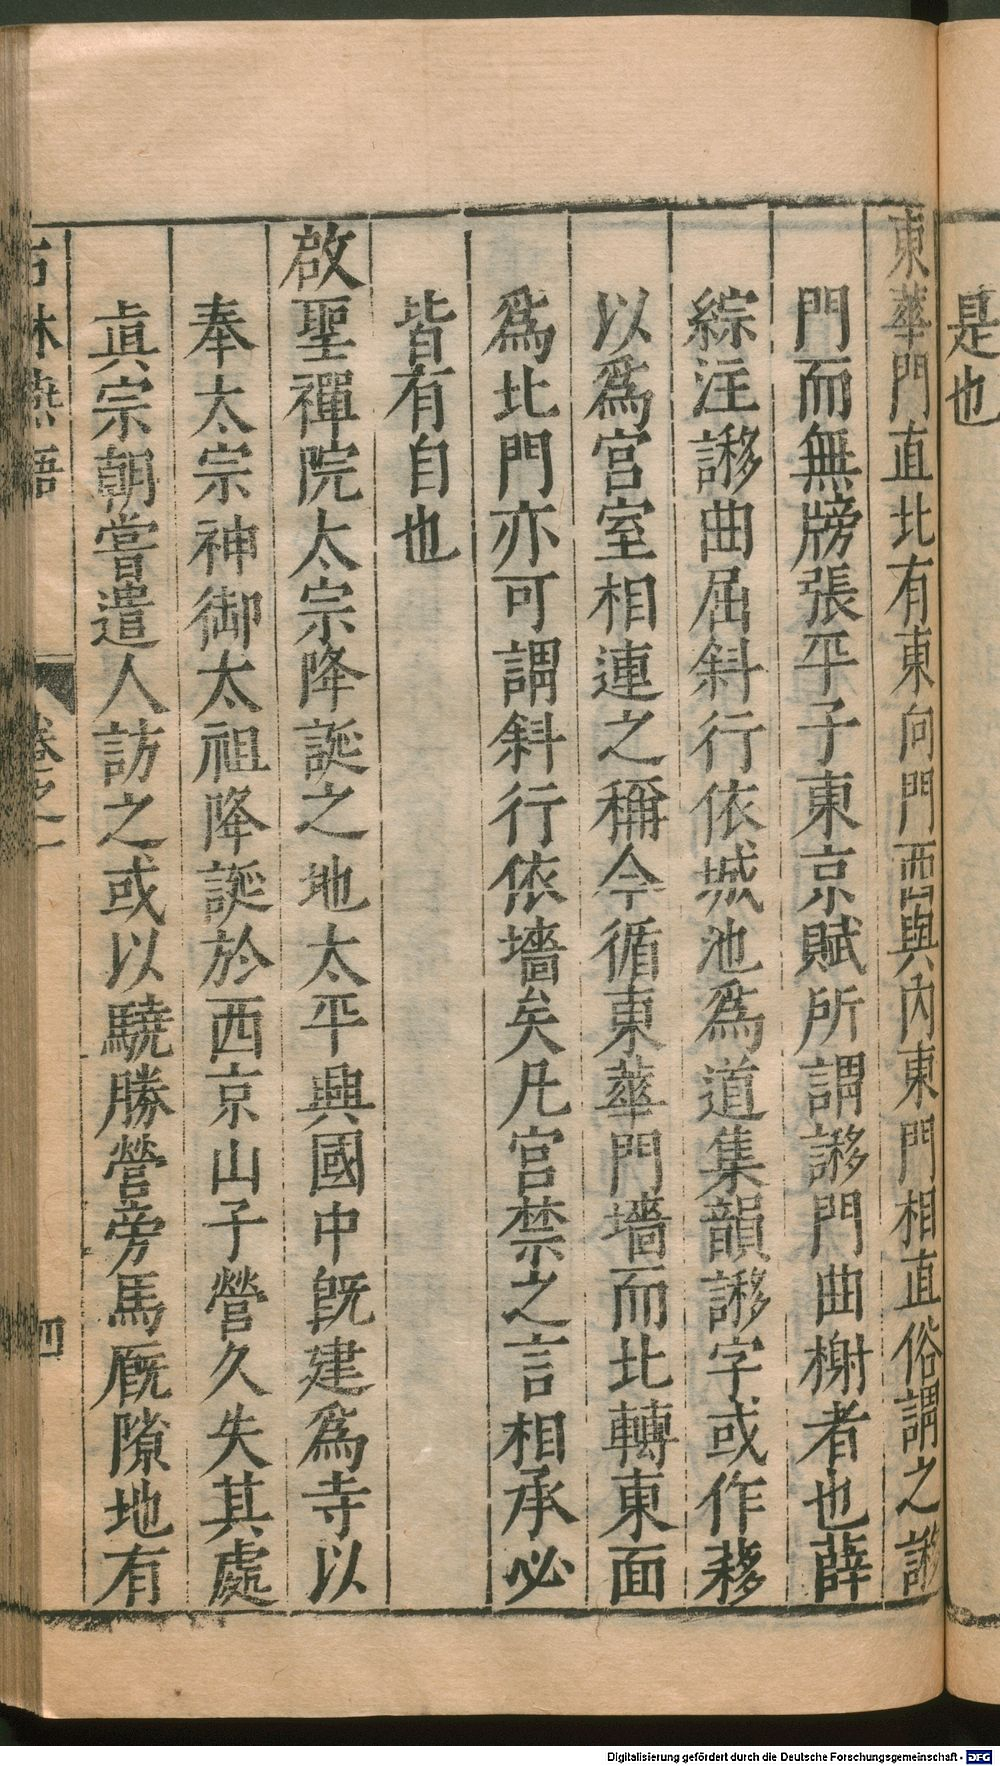 是也
東華門直北有東向門西與内東門相直俗謂之謻
門而無牓張平子東京賦所謂謻門曲榭者也薛
綜注謻曲屈斜行依城池爲道集韻謻字或作簃
以爲宫室相連之稱今循東華門墻而北轉東面
爲北門亦可謂斜行依墻矣凡宫禁之言相承必
皆有自也
啟聖禪院太宗降誕之地太平興國中旣建爲寺以
奉太宗神御太祖降誕於西京山子營久失其處
眞宗朝嘗遣人訪之或以驍勝營旁馬廐隙地有
石林燕語
卷之一
四
Digitalisierung gefördert durch die Deutsche Forschungsgemeinschaft - DFG